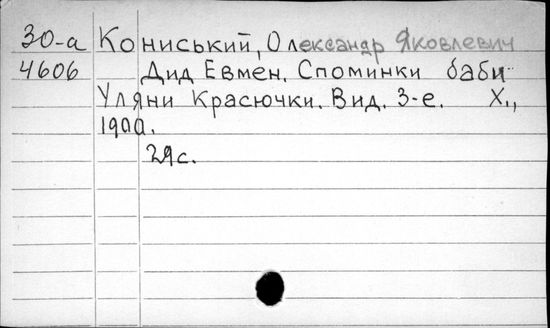 30-а Кониський, Олександр Яковлевич
4606 Дид Евмен. Споминки баби
Уляни Красючки. Вид. 3-е. Х.,
1900.
29с.